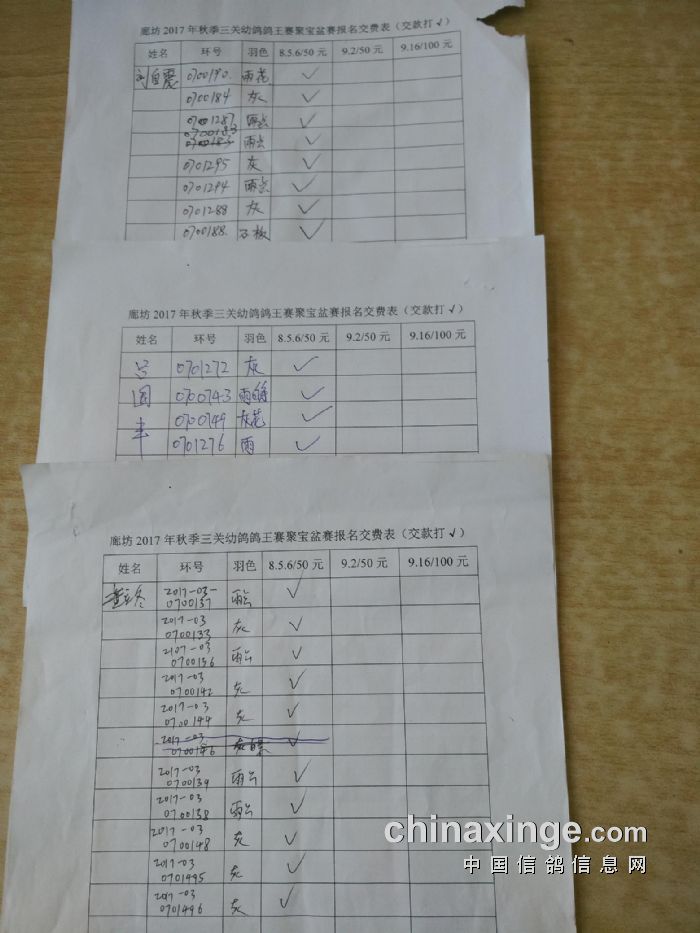 廊坊 2017 年秋季三关幼鸽鸽王赛聚宝盆赛报名交费表（交款打 √）
姓名 环号 羽色 8.5.6/50 元 9.2/50 元 9.16/100 元
0700190 雨花 ✓
0700184 灰 ✓
0701287 雨点 ✓
0700183
0700183 雨点 ✓
0701295 灰 ✓
0701294 雨点 ✓
0701288 灰 ✓
0700188 ✓
廊坊 2017 年秋季三关幼鸽鸽王赛聚宝盆赛报名交费表（交款打 √）
姓名 环号 羽色 8.5.6/50 元 9.2/50 元 9.16/100 元
吕 0701272 灰 ✓
圆 0700743 ✓
丰 0700749 灰花 ✓
0701276 雨 ✓
廊坊 2017 年秋季三关幼鸽鸽王赛聚宝盆赛报名交费表（交款打 √）
姓名 环号 羽色 8.5.6/50 元 9.2/50 元 9.16/100 元
2017-03-
0700137 雨点 ✓
2017-03
0700133 灰 ✓
2107-03
0700136 雨点 ✓
2017-03
0700142 灰 ✓
2017-03
0700144 灰 ✓
2017-03
0700146 ✓
2017-03
0700139 雨点 ✓
2017-03
0700138 雨点 ✓
2017-03
0700148 灰 ✓
2017-03
0701495 灰 ✓
2017-03
0701496 灰 ✓
chinaxinge.com
中国信鸽信息网